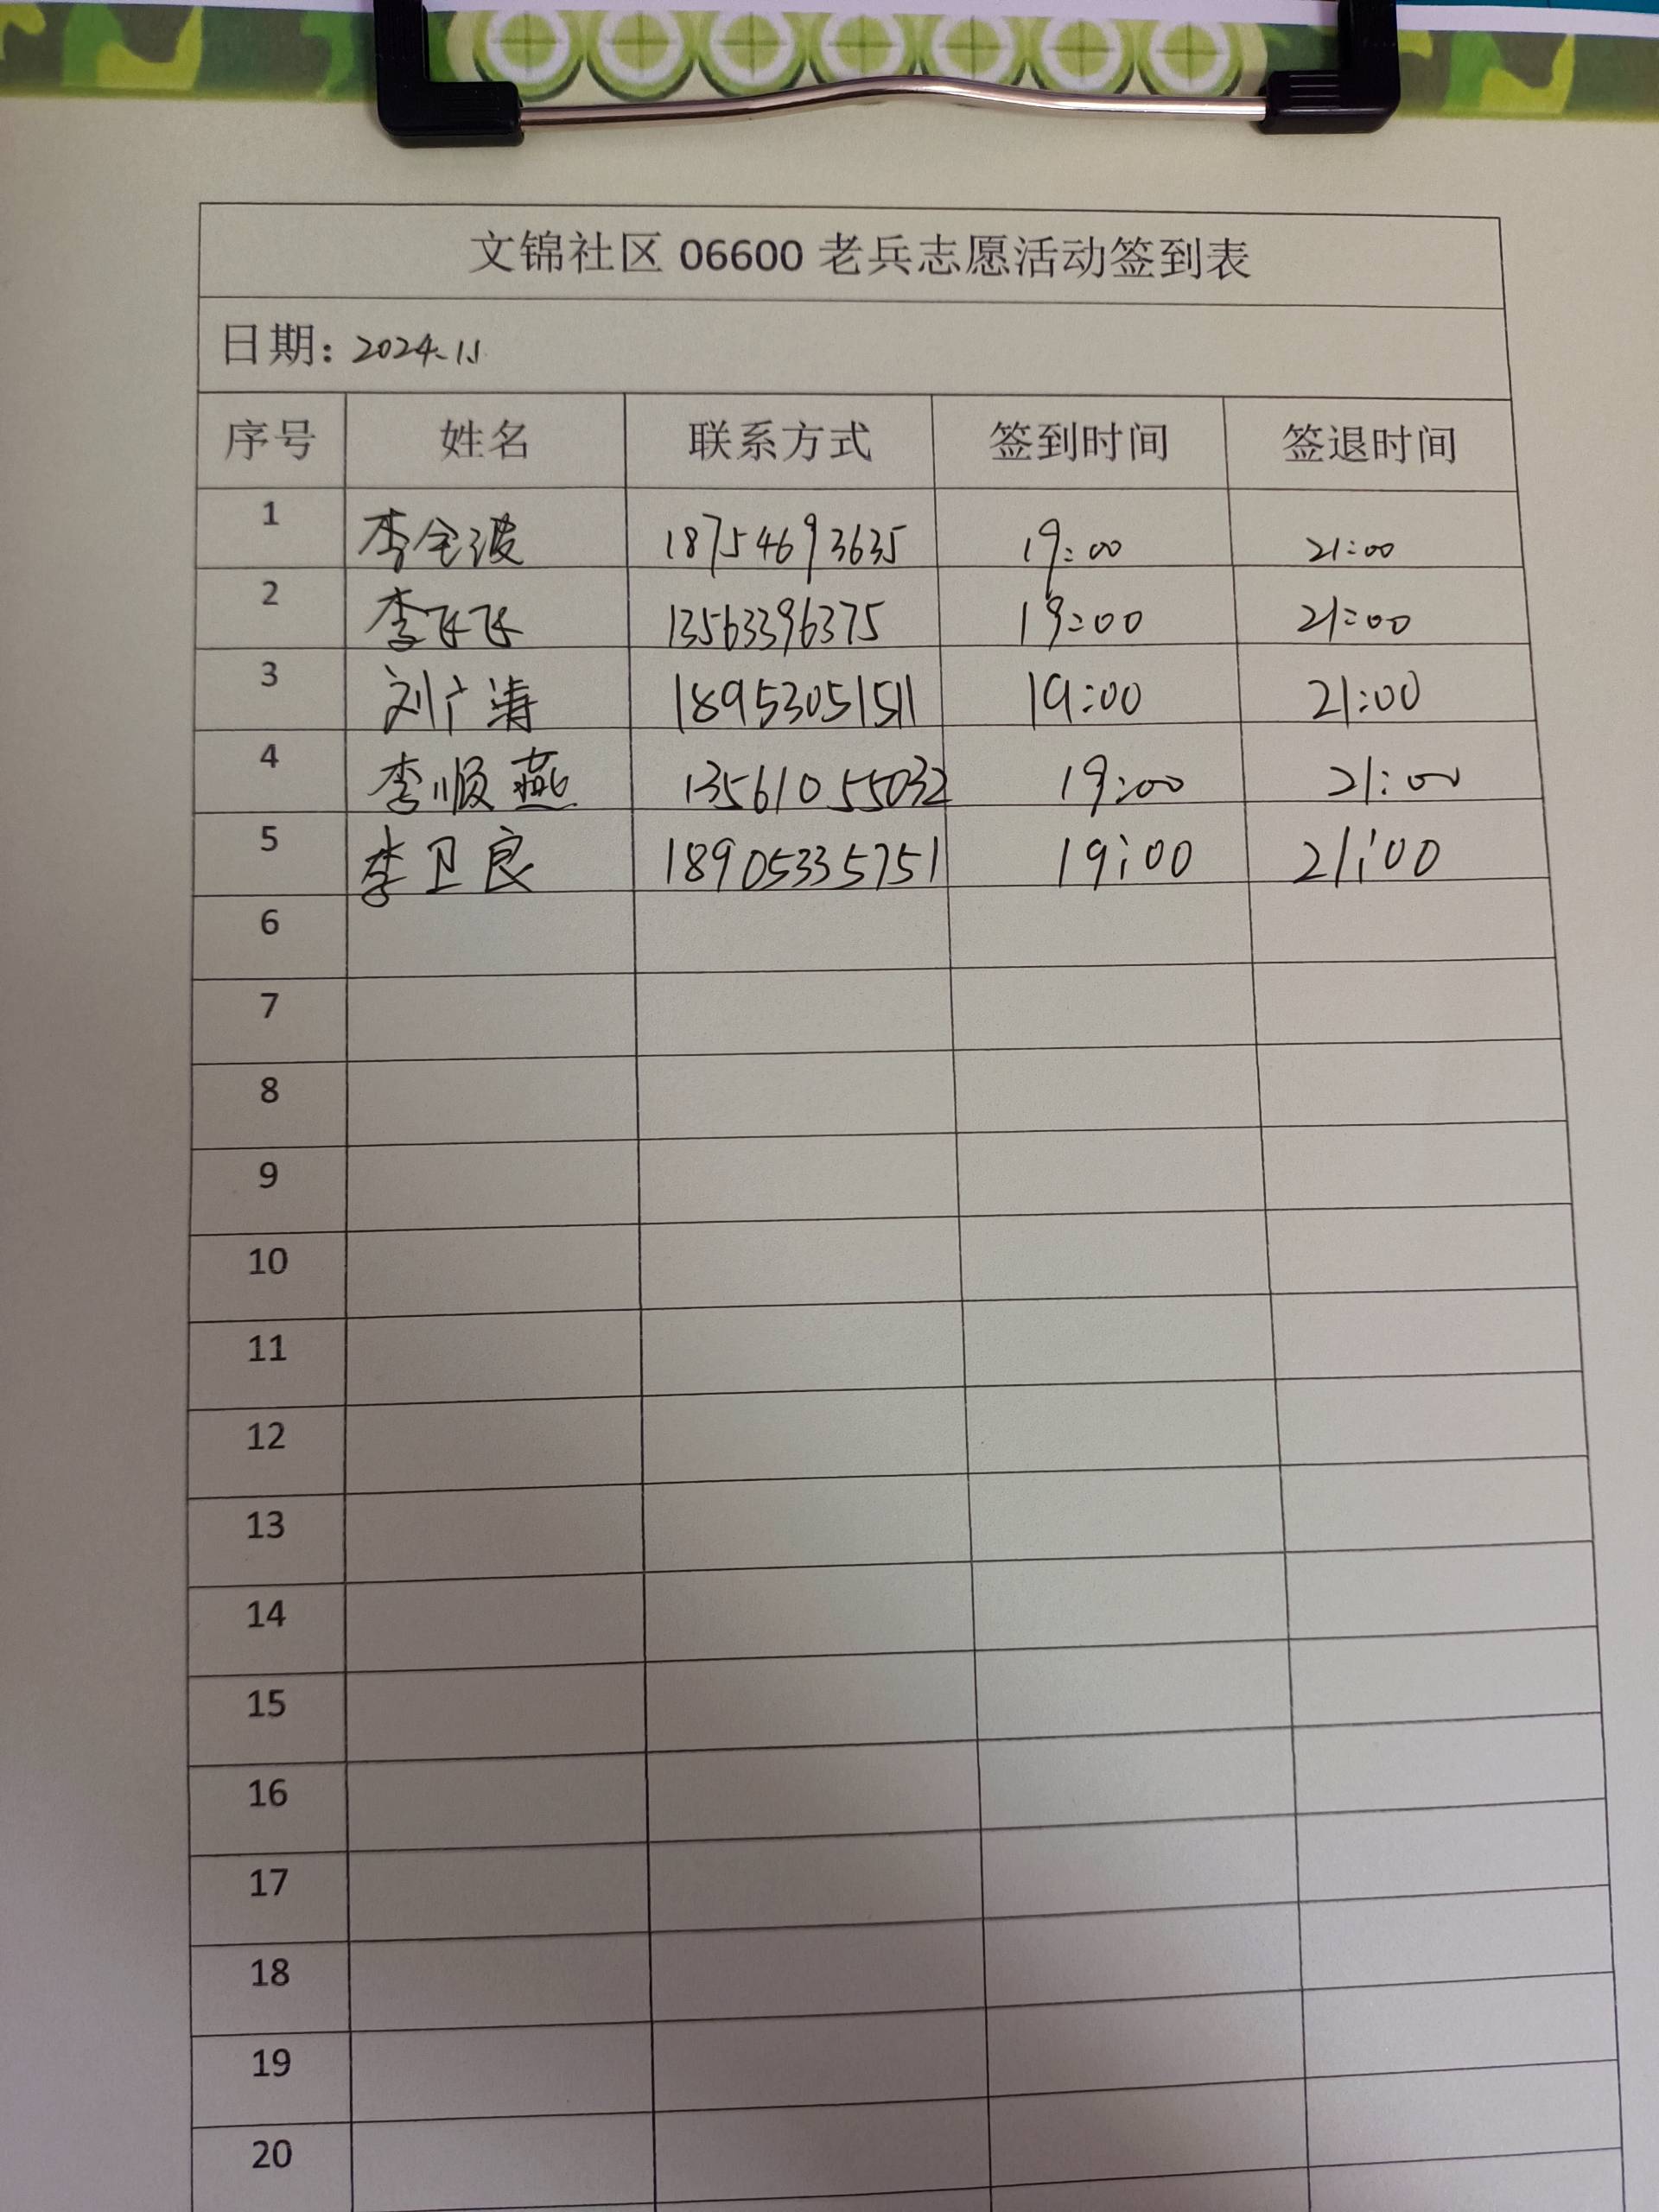 文锦社区 06600 老兵志愿活动签到表
日期: 2024.1.1
序号 姓名 联系方式 签到时间 签退时间
1 李全波 18754693635 19:00 21:00
2 李飞飞 13563396375 19:00 21:00
3 刘广涛 18953051511 19:00 21:00
4 李顺燕 13561055032 19:00 21:00
5 李卫良 18905335751 19:00 21:00
6
7
8
9
10
11
12
13
14
15
16
17
18
19
20